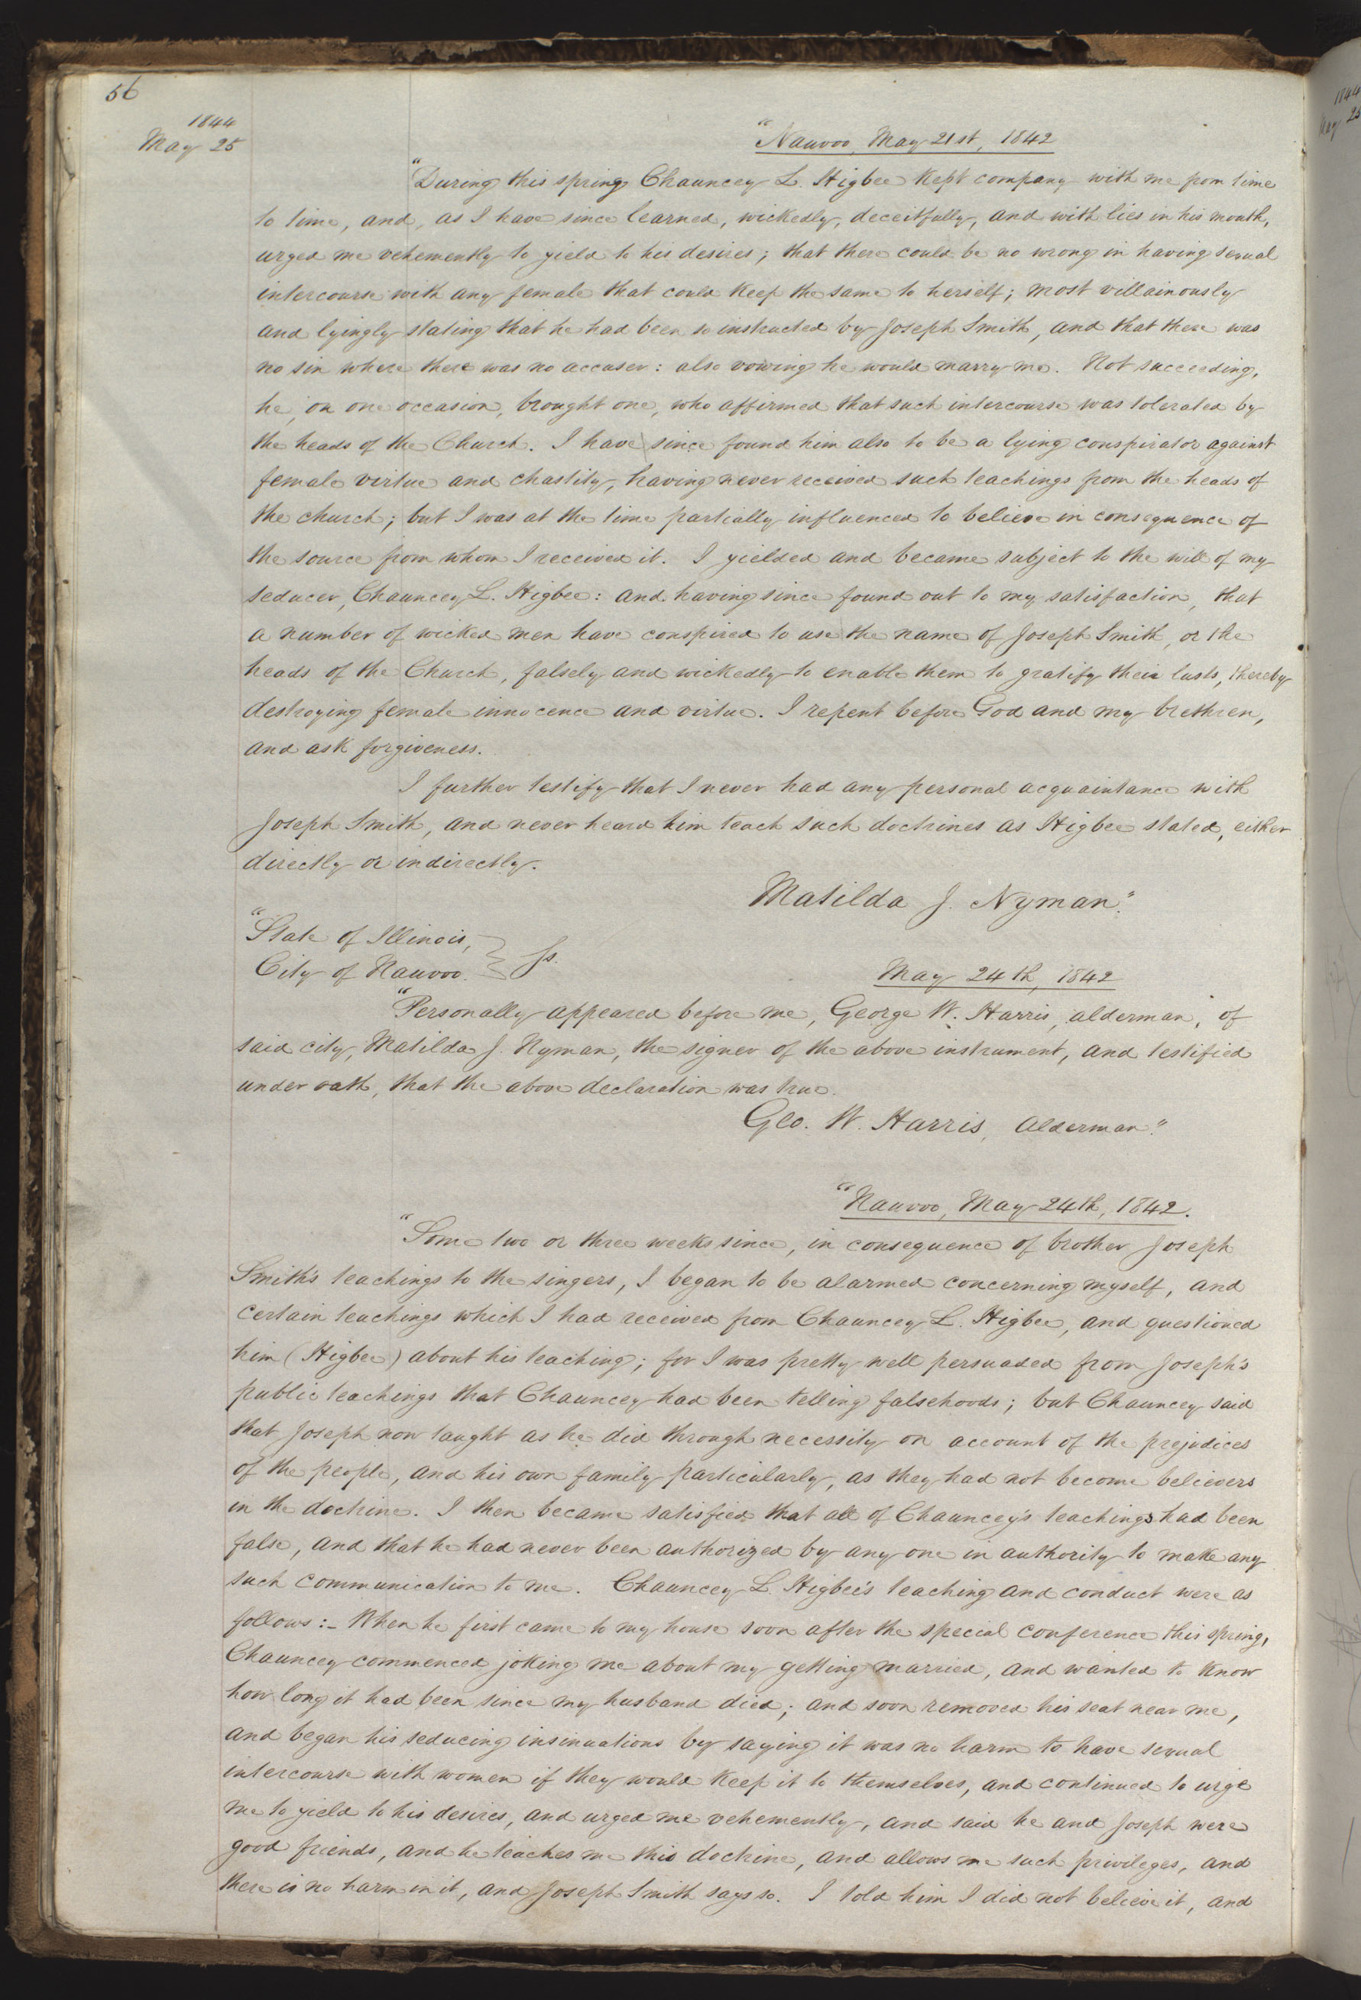 56
1844
May 25
"Nauvoo, May 21st, 1842
"During this spring Chauncey L. Higbee kept company with me from time
to time, and, as I have since learned, wickedly, deceitfully, and with lies in his mouth,
urged me vehemently to yield to his desires; that there could be no wrong in having sexual
intercourse with any female that could keep the same to herself; most villainously
and lyingly stating that he had been so instructed by Joseph Smith, and that there was
no sin where there was no accuser: also vowing he would marry me. Not succeeding,
he, on one occasion, brought one, who affirmed that such intercourse was tolerated by
the heads of the Church. I have since found him also to be a lying conspirator against
female virtue and chastity, having never received such teachings from the heads of
the church; but I was at the time partially influenced to believe in consequence of
the source from whom I received it. I yielded and became subject to the will of my
seducer, Chauncey L. Higbee: and having since found out to my satisfaction, that
a number of wicked men have conspired to use the name of Joseph Smith, or the
heads of the Church, falsely and wickedly to enable them to gratify their lusts, thereby
destroying female innocence and virtue. I repent before God and my brethren,
and ask forgiveness.
I further testify that I never had any personal acquaintance with
Joseph Smith, and never heard him teach such doctrines as Higbee stated, either
directly or indirectly.
Matilda J. Nyman."
"State of Illinois,
City of Nauvoo. } Ss.
May 24th, 1842
"Personally appeared before me, George W. Harris, alderman, of
said city, Matilda J. Nyman, the signer of the above instrument, and testified
under oath, that the above declaration was true.
Geo. W. Harris, Alderman."
"Nauvoo, May 24th, 1842.
"Some two or three weeks since, in consequence of brother Joseph
Smith's teachings to the singers, I began to be alarmed concerning myself, and
certain teachings which I had received from Chauncey L. Higbee, and questioned
him (Higbee) about his teaching; for I was pretty well persuaded from Joseph's
public teachings that Chauncey had been telling falsehoods; but Chauncey said
that Joseph now taught as he did through necessity on account of the prejudices
of the people, and his own family particularly, as they had not become believers
in the doctrine. I then became satisfied that all of Chauncey's teachings had been
false, and that he had never been authorized by any one in authority to make any
such communication to me. Chauncey L. Higbee's teaching and conduct were as
follows:- When he first came to my house soon after the special conference this spring,
Chauncey commenced joking me about my getting married, and wanted to know
how long it had been since my husband died; and soon removed his seat near me,
and began his seducing insinuations by saying it was no harm to have sexual
intercourse with women if they would keep it to themselves, and continued to urge
me to yield to his desires, and urged me vehemently, and said he and Joseph were
good friends, and he teaches me this doctrine, and allows me such privileges, and
there is no harm in it, and Joseph Smith says so. I told him I did not believe it, and
1844
May 25